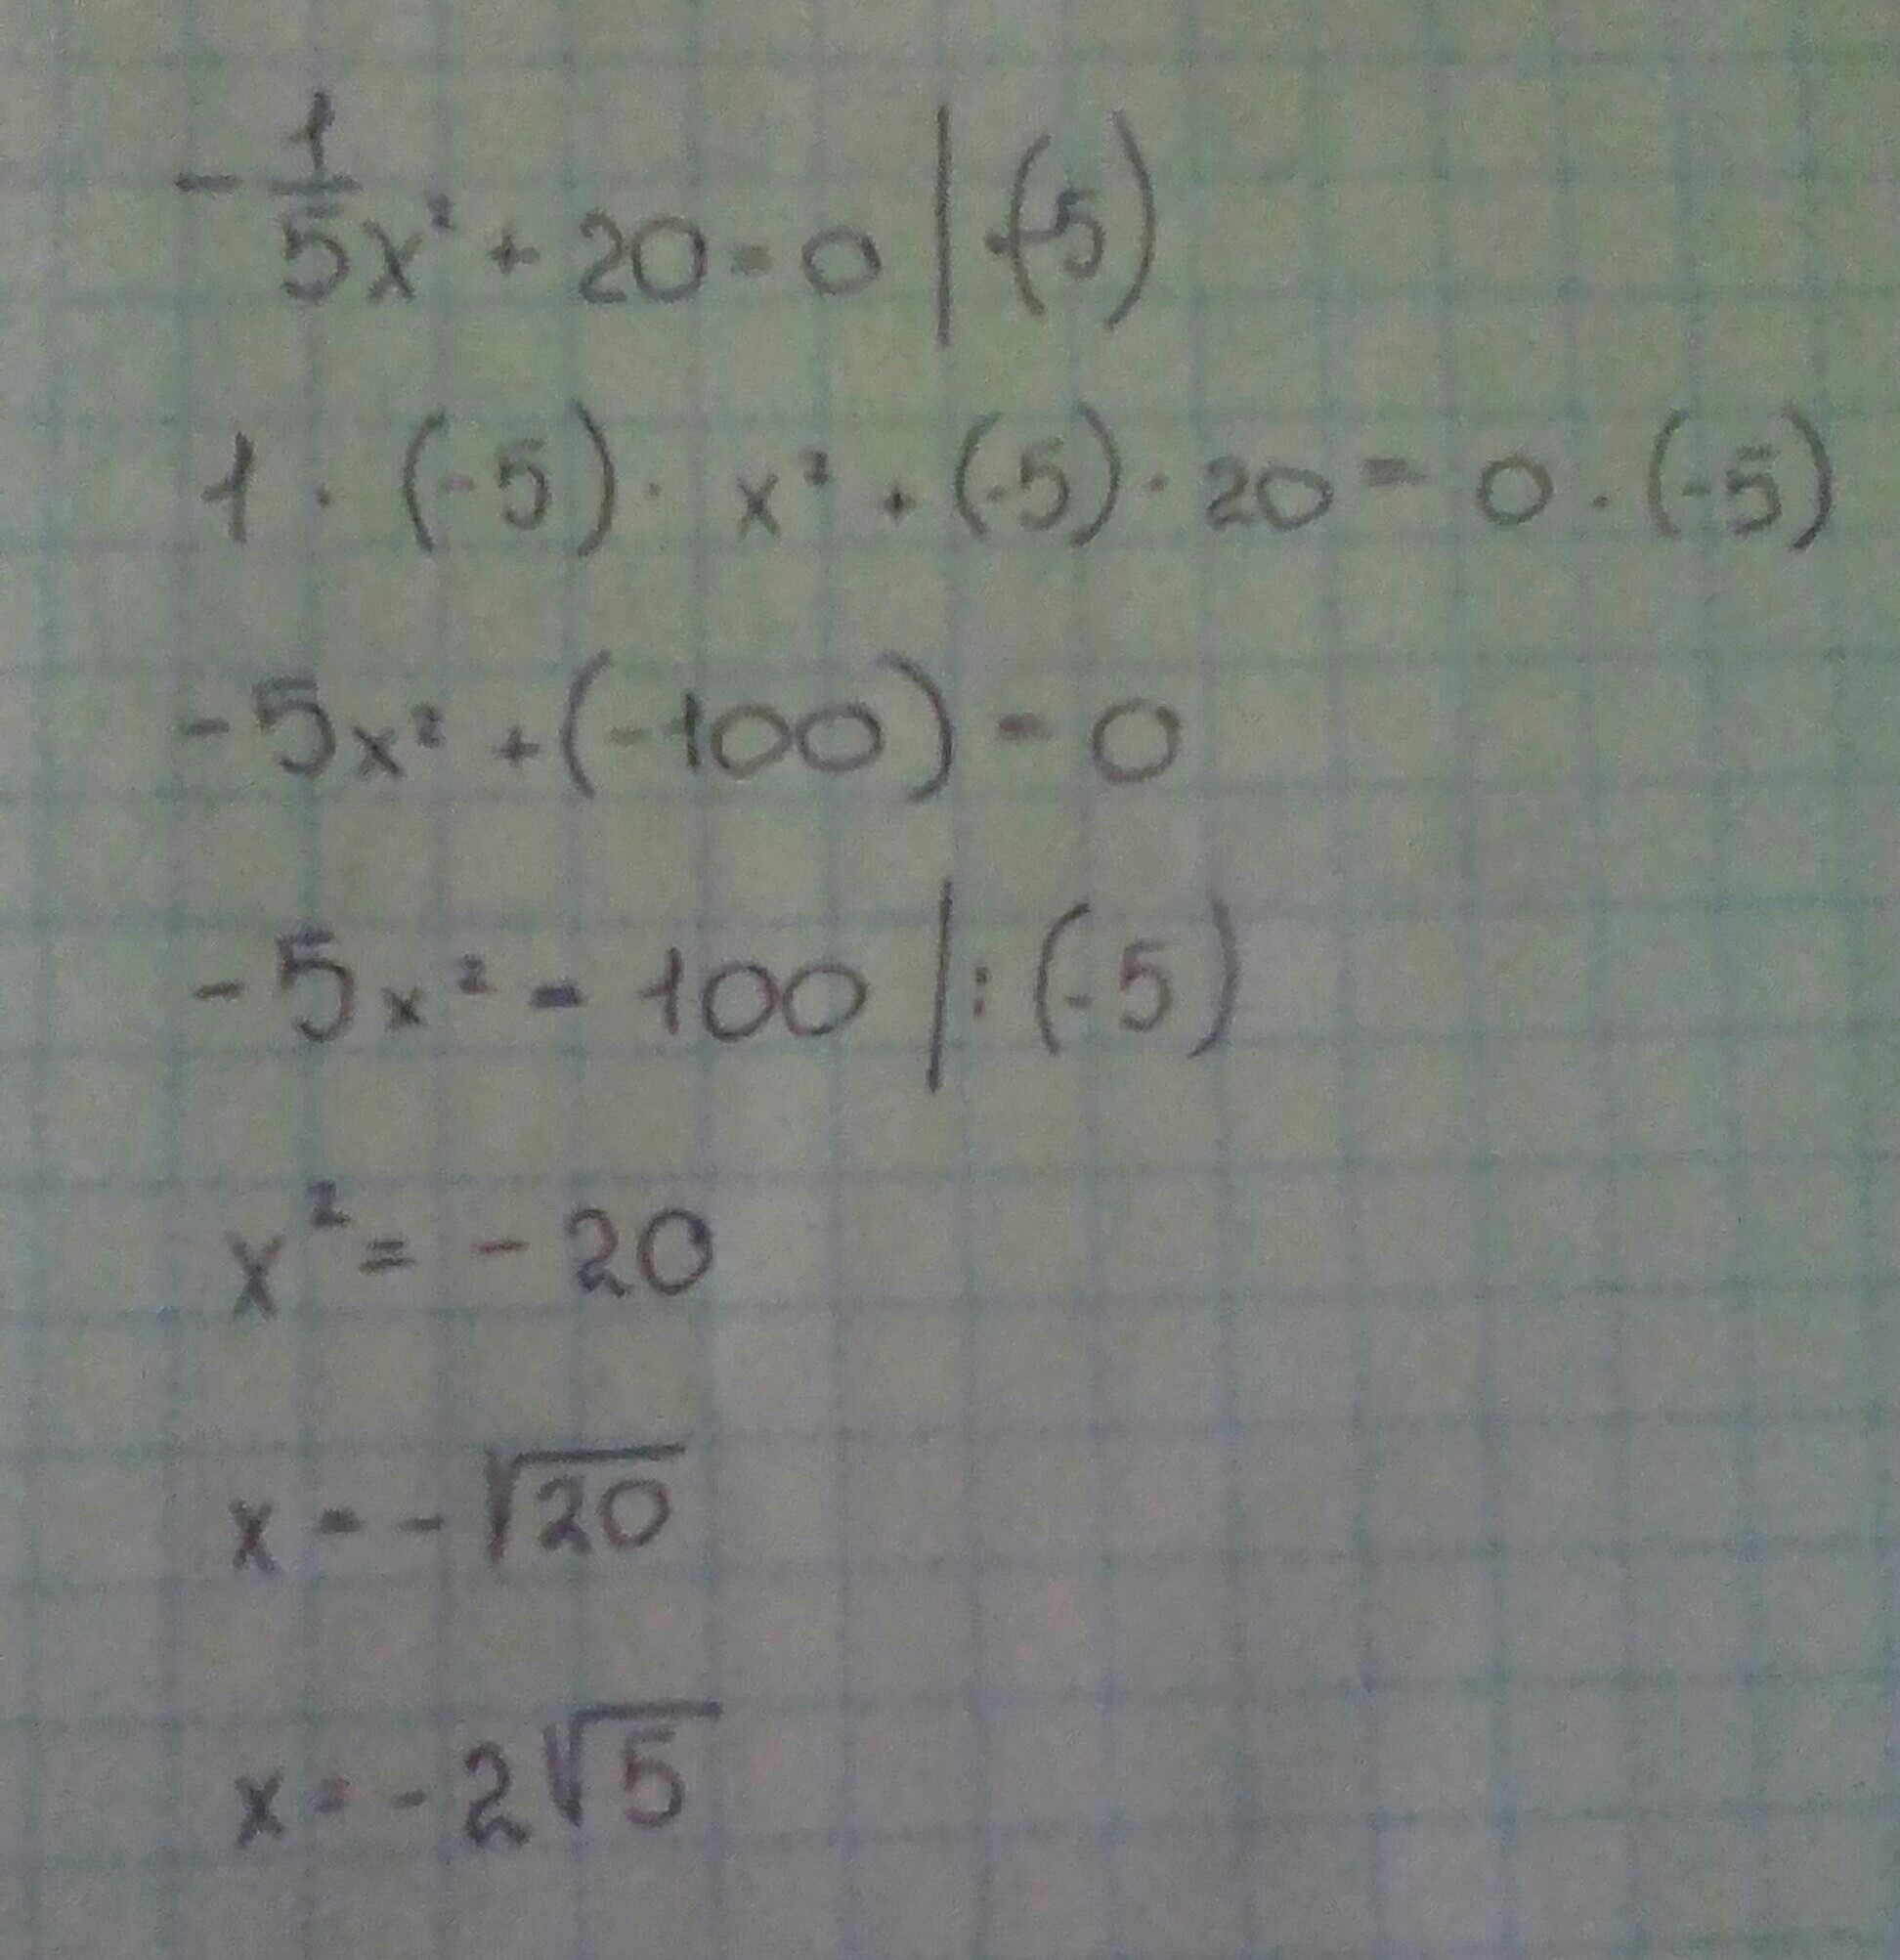 -1/5x² + 20 = 0 | ·(-5)
1 · (-5) · x² + (-5) · 20 = 0 · (-5)
-5x² + (-100) = 0
-5x² = 100 | : (-5)
x² = - 20
x = - √20
x = - 2√5